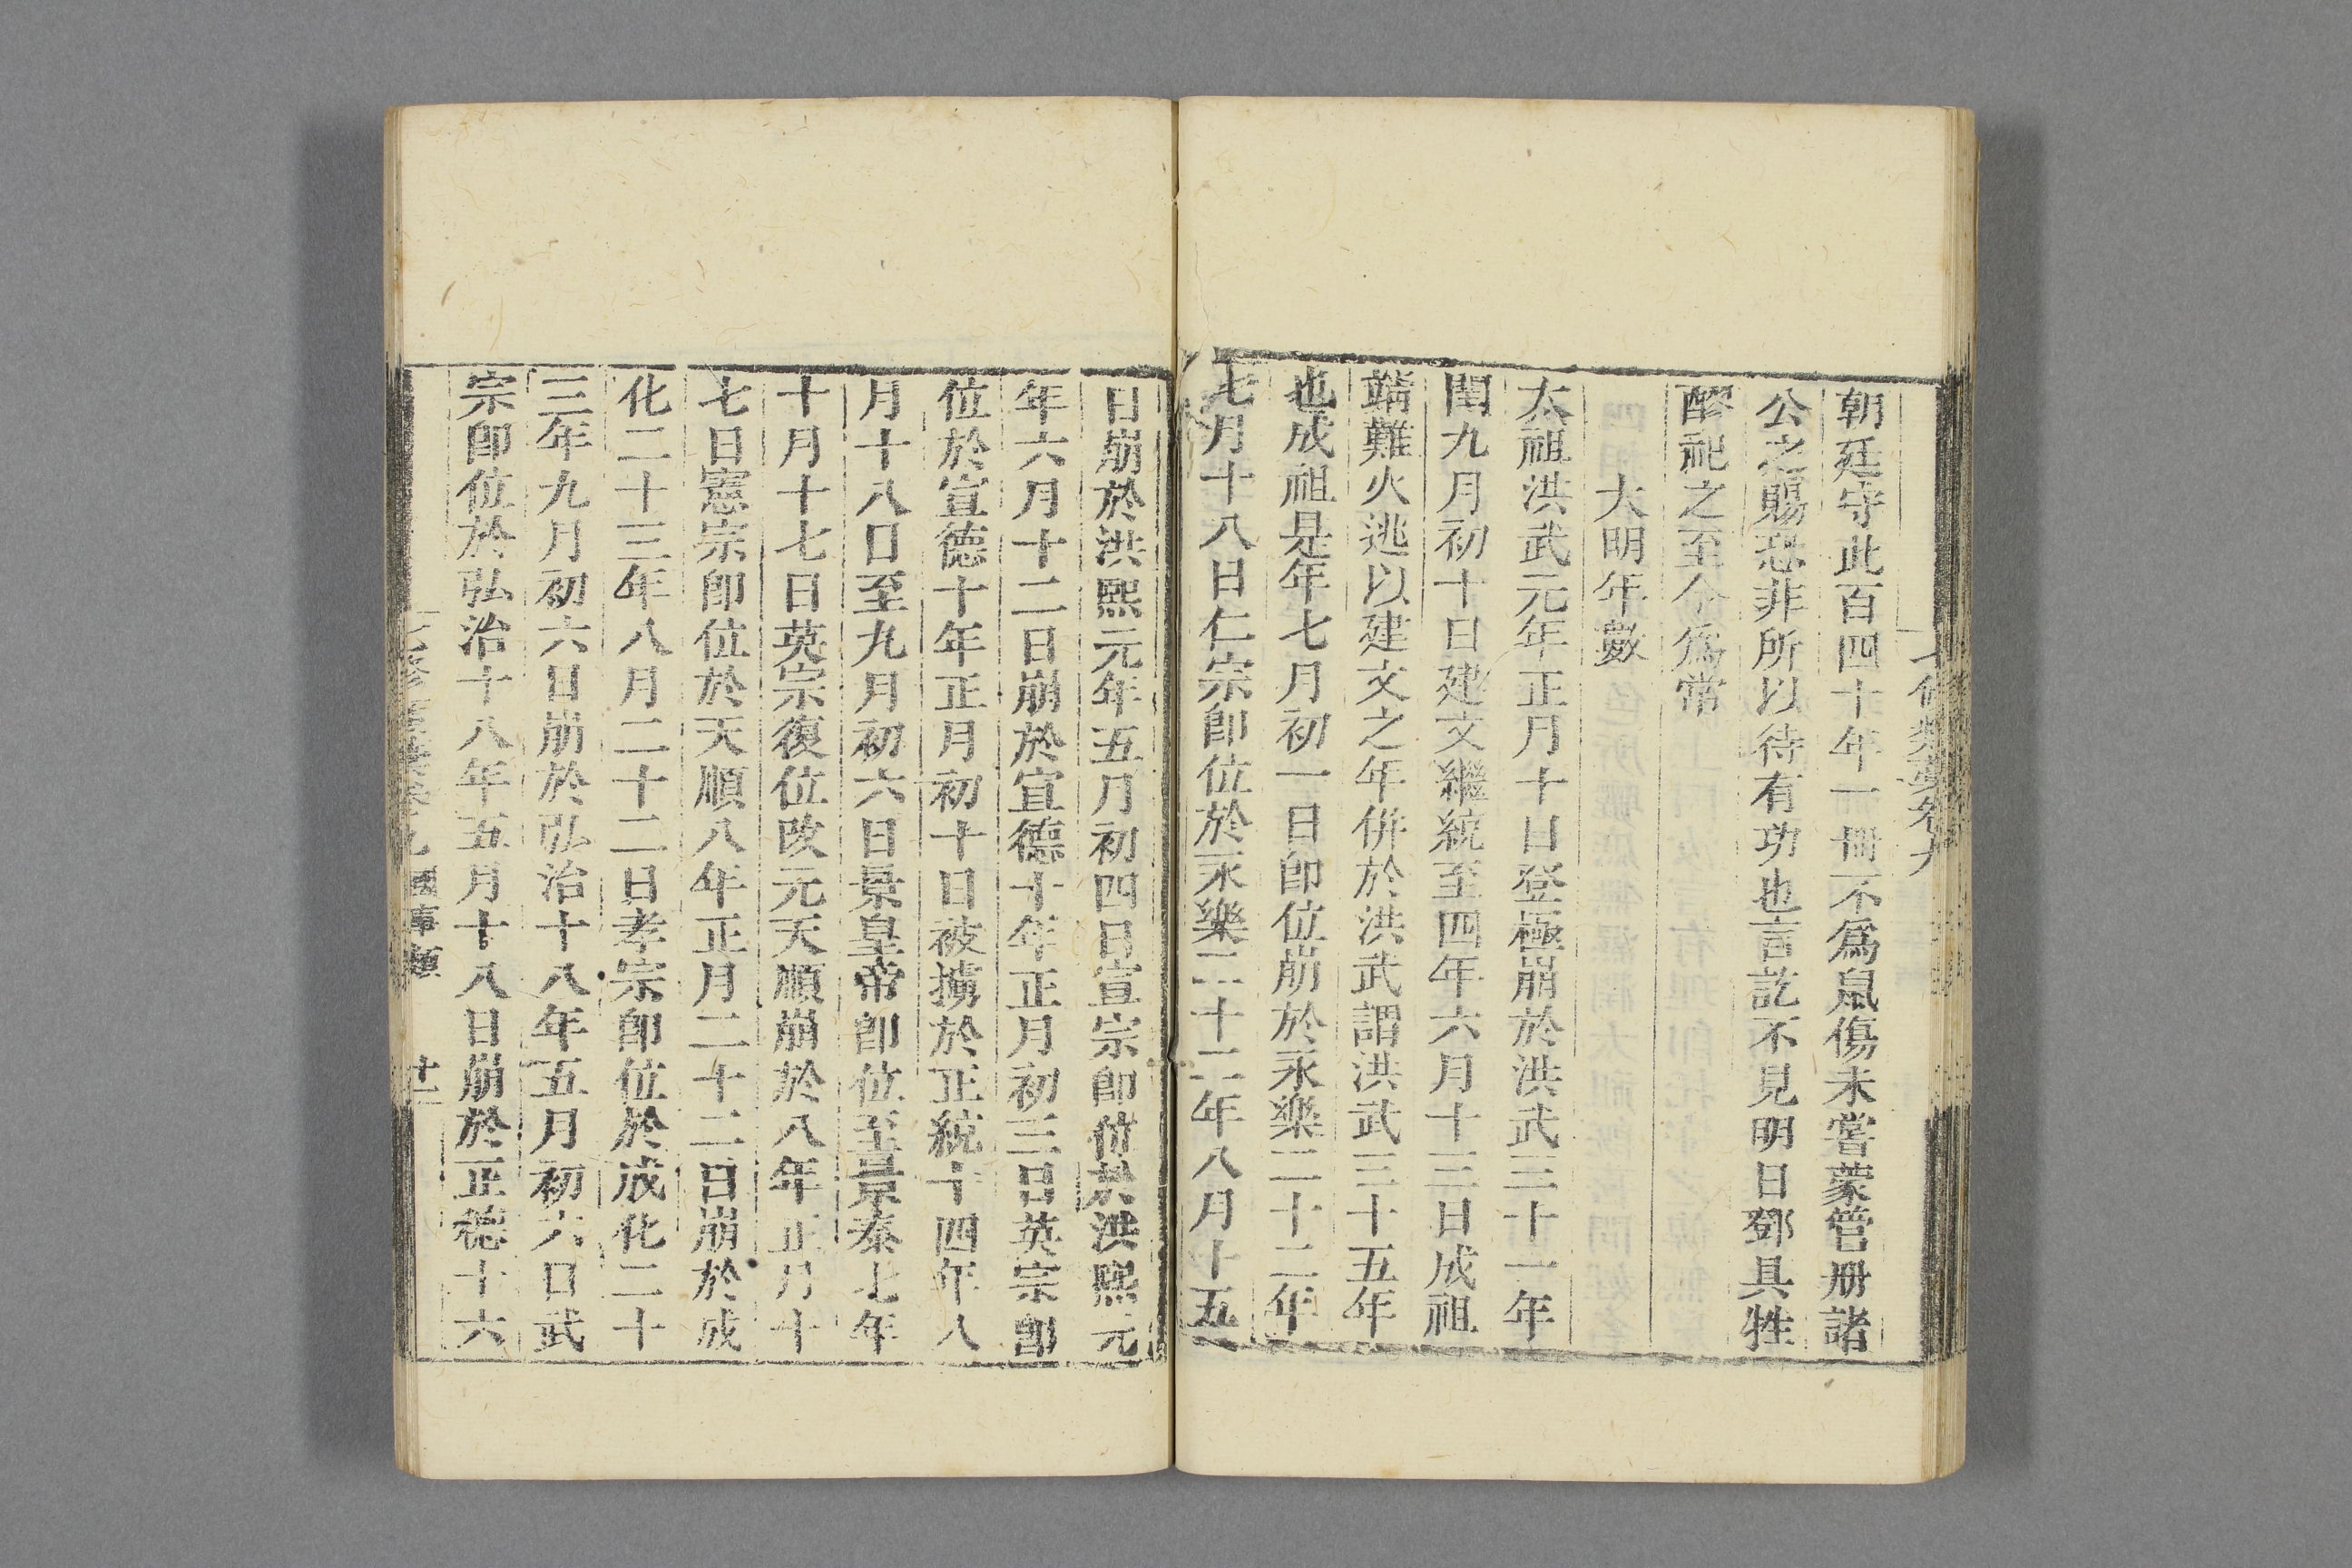 七修類藁卷九
朝廷守此百四十年一冊不爲鼠傷未嘗蒙管册諸
公之賜恐非所以待有功也言訖不見明日鄧具牲
醪祀之至今爲常
大明年數
太祖洪武元年正月十日登極崩於洪武三十一年
閏九月初十日建文繼統至四年六月十三日成祖
靖難火逃以建文之年併於洪武謂洪武三十五年
也成祖是年七月初一日卽位崩於永樂二十二年
七月十八日仁宗卽位於永樂二十二年八月十五
日崩於洪熙元年五月初四日宣宗卽位於洪熙元
年六月十二日崩於宣德十年正月初三日英宗卽
位於宣德十年正月初十日被擄於正統十四年八
月十八日至九月初六日景皇帝卽位至景泰七年
十月十七日英宗復位改元天順崩於八年正月十
七日憲宗卽位於天順八年正月二十二日崩於成
化二十三年八月二十二日孝宗卽位於成化二十
三年九月初六日崩於弘治十八年五月初六日武
宗卽位於弘治十八年五月十八日崩於正德十六
七修類藁卷九 國事類 十二